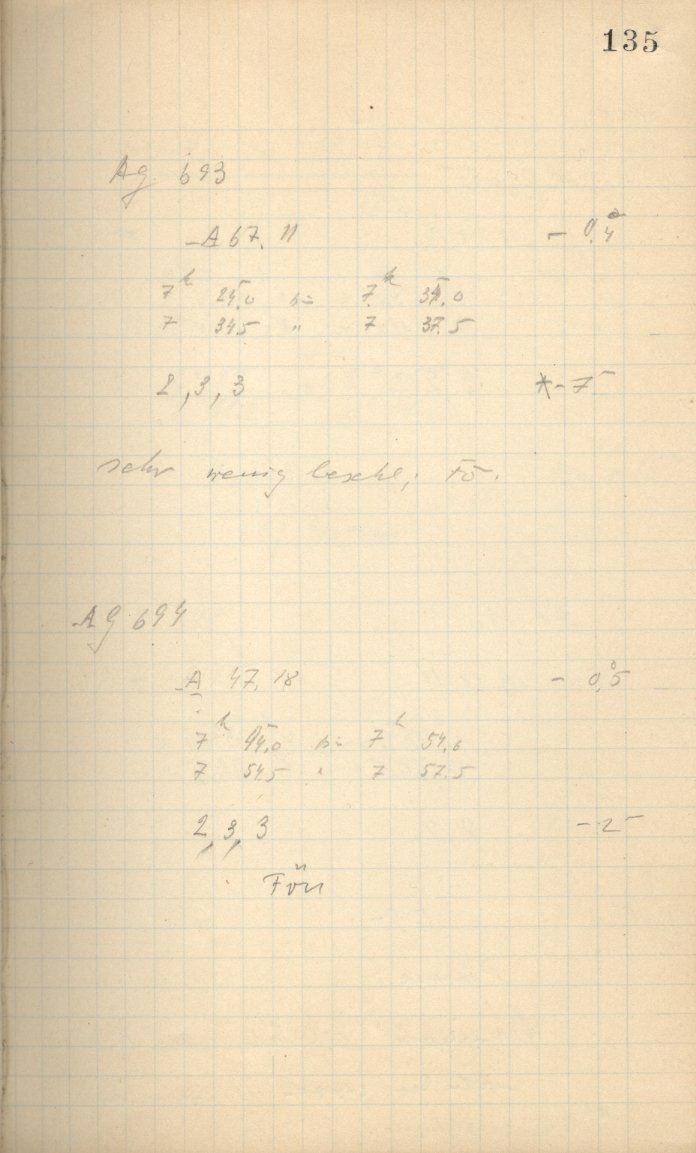 135
Ag 693
A 67. 11 - 0,4°
7h 24.0 bis 7h 34.0
7 34.5 " 7 37.5
2, 3, 3 *- 7
sehr wenig beschl, Fö.
Ag 694
A 47, 18 - 0,5°
7h 44.0 bis 7h 54.0
7 54.5 " 7 57.5
2, 3, 3 - 2
Fön